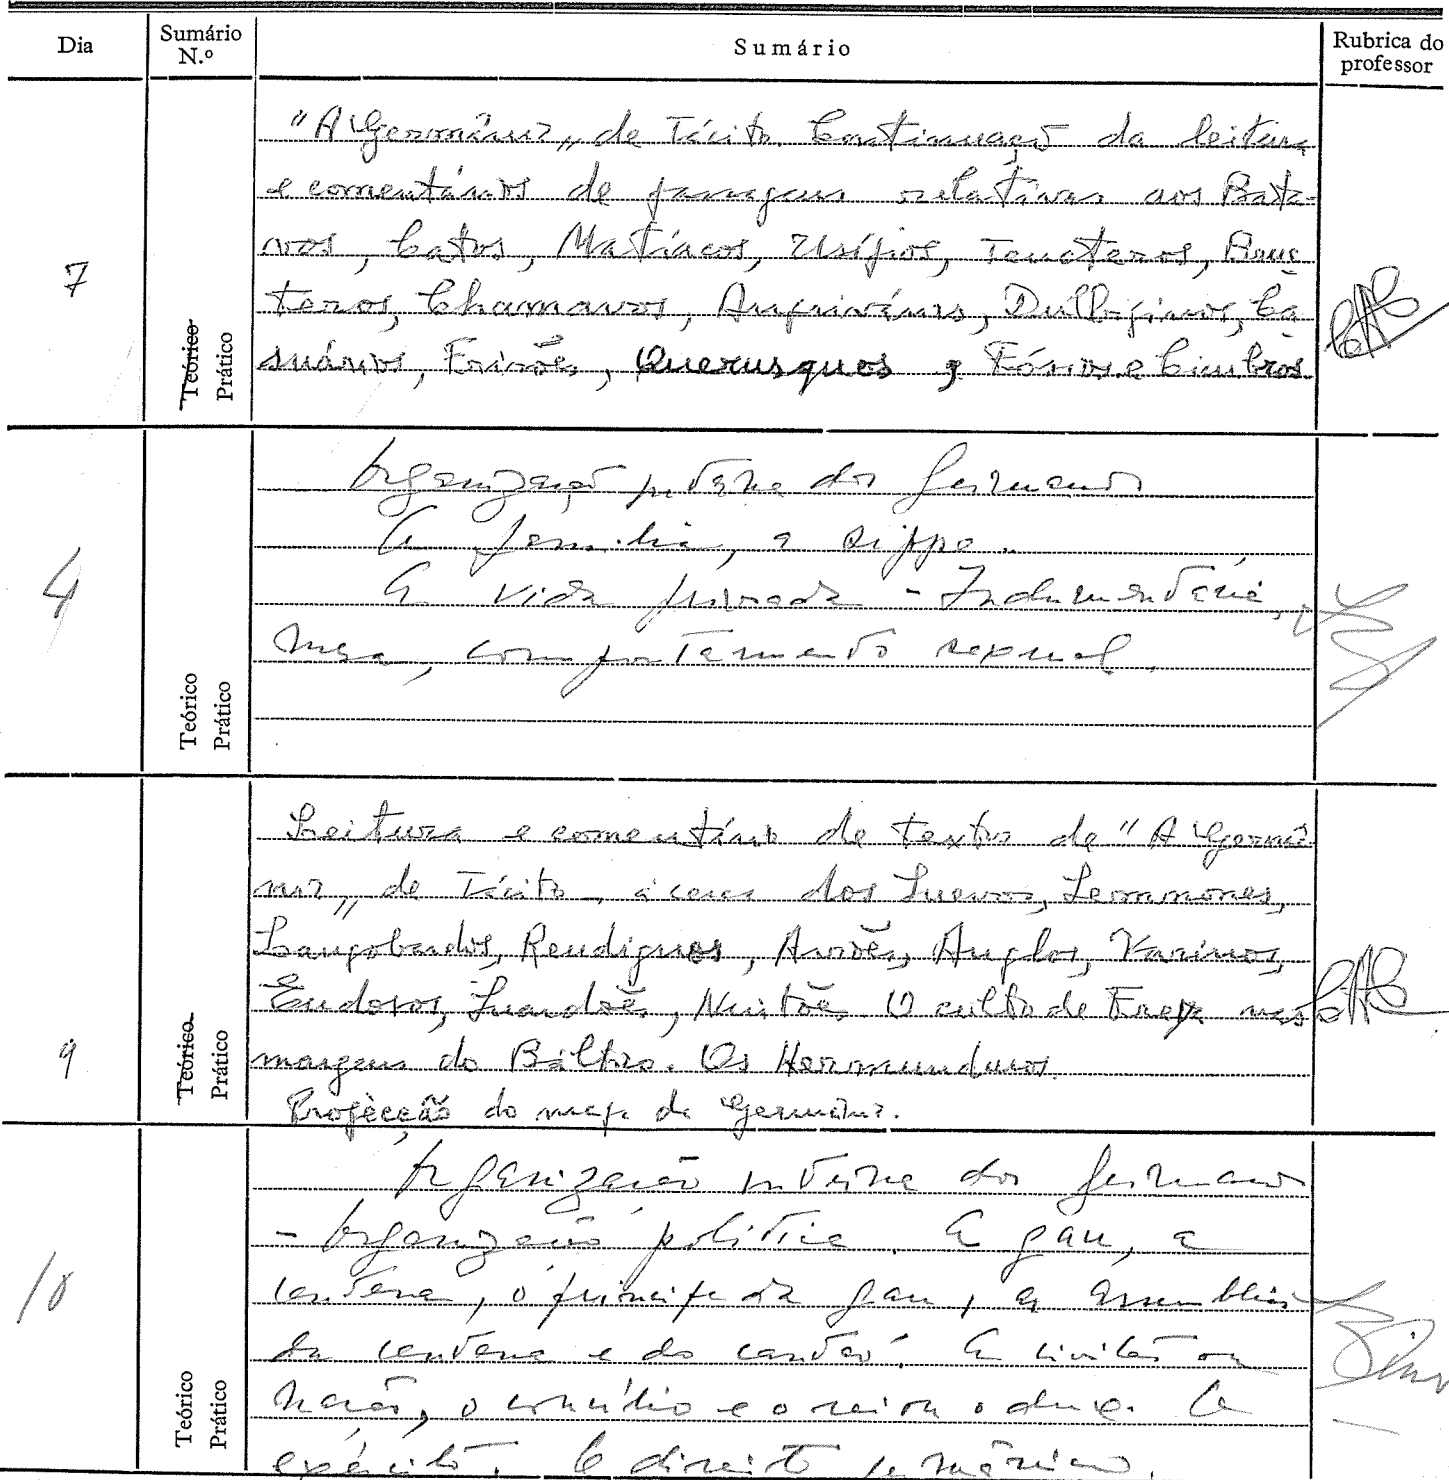 Dia
Sumário N.º
Sumário
Rubrica do professor
7
Teórico
Prático
"A Germânia„ de Tácito. Continuação da leitura
e comentários de passagens relativas aos Bata-
vos, Catos, Matíacos, Usípios, Tencteros, Bruc
teros, Chamavos, Angrivários, Dulgibinos, Ca
suários, Frisões, Querusquos, Fósios e Cimbros.
4
Teórico
Prático
Organização interna dos Germanos
A família, a sippe.
A vida privada - Indumentária,
mesa, comportamento sexual.
9
Teórico
Prático
Leitura e comentário de textos de "A Germâ
nia„ de Tácito, àcerca dos Suevos, Semnones,
Langobardos, Reudignos, Aviões, Anglos, Varinos,
Eudosos, Suardões, Nuitões. O culto de Freya nas
margens do Báltico. Os Hermunduros.
Projecção do mapa da Germânia.
10
Teórico
Prático
Organização interna dos Germanos
- Organização política. A gau, a
centena, o príncipe da gau, as assembleias
da centena e do cantão. A civitas ou
nação, o concílio e o rei ou o duque. O
exército. O direito germânico.